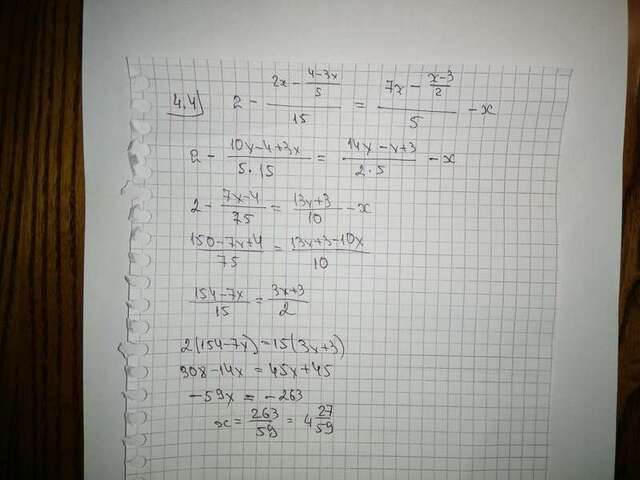 4.4
2 - (2x - (4-3x)/5)/15 = (7x - (x-3)/2)/5 - x
2 - (10x-4+3x)/(5·15) = (14x-x+3)/(2·5) - x
2 - (7x-4)/75 = (13x+3)/10 - x
(150-7x+4)/75 = (13x+3-10x)/10
(154-7x)/15 = (3x+3)/2
2(154-7x)=15(3x+3)
308-14x=45x+45
-59x = -263
x = 263/59 = 4 27/59